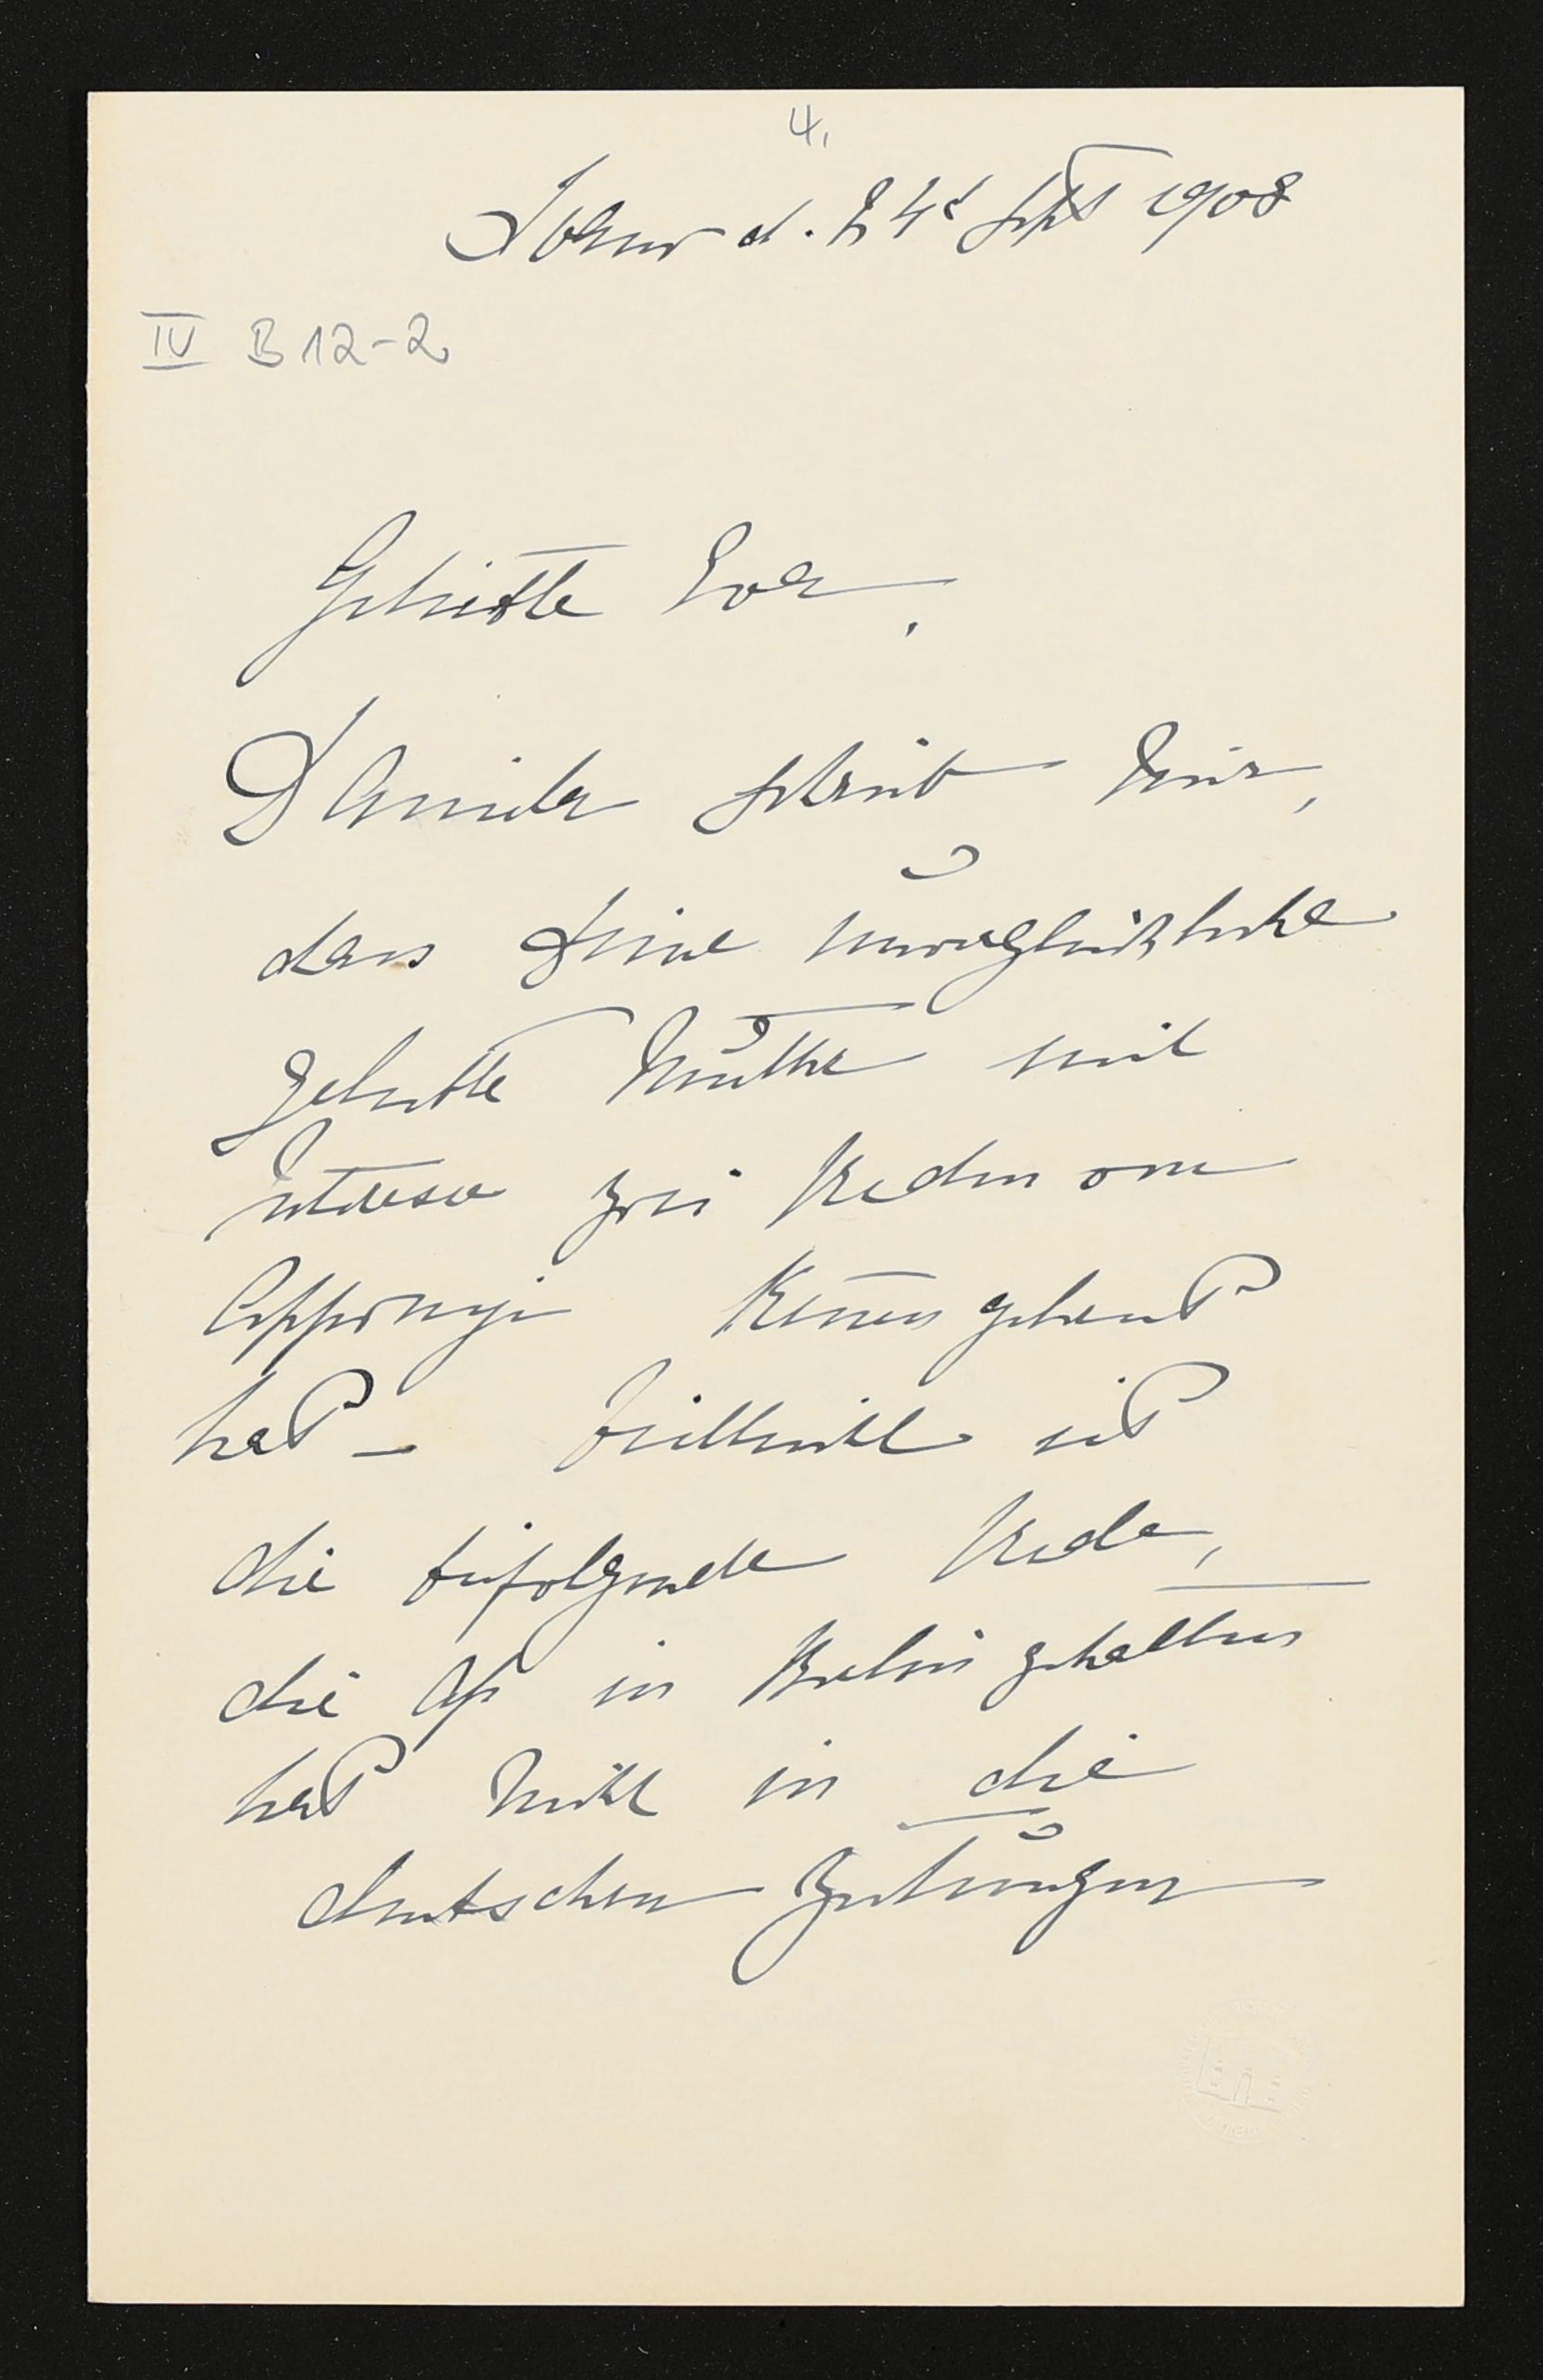 4.
d. 24t Sept 1908
IV B 12-2
Geliebte Eva,
Daniela schreibt mir,
dass Deine unvergleichliche
geliebte Mutter mit
Interesse zwei Reden von
Apponyi kennen gelernt
hat – vielleicht ist
die beifolgende Rede,
die Ap in Berlin gehalten
hat nicht in die
deutschen Zeitungen